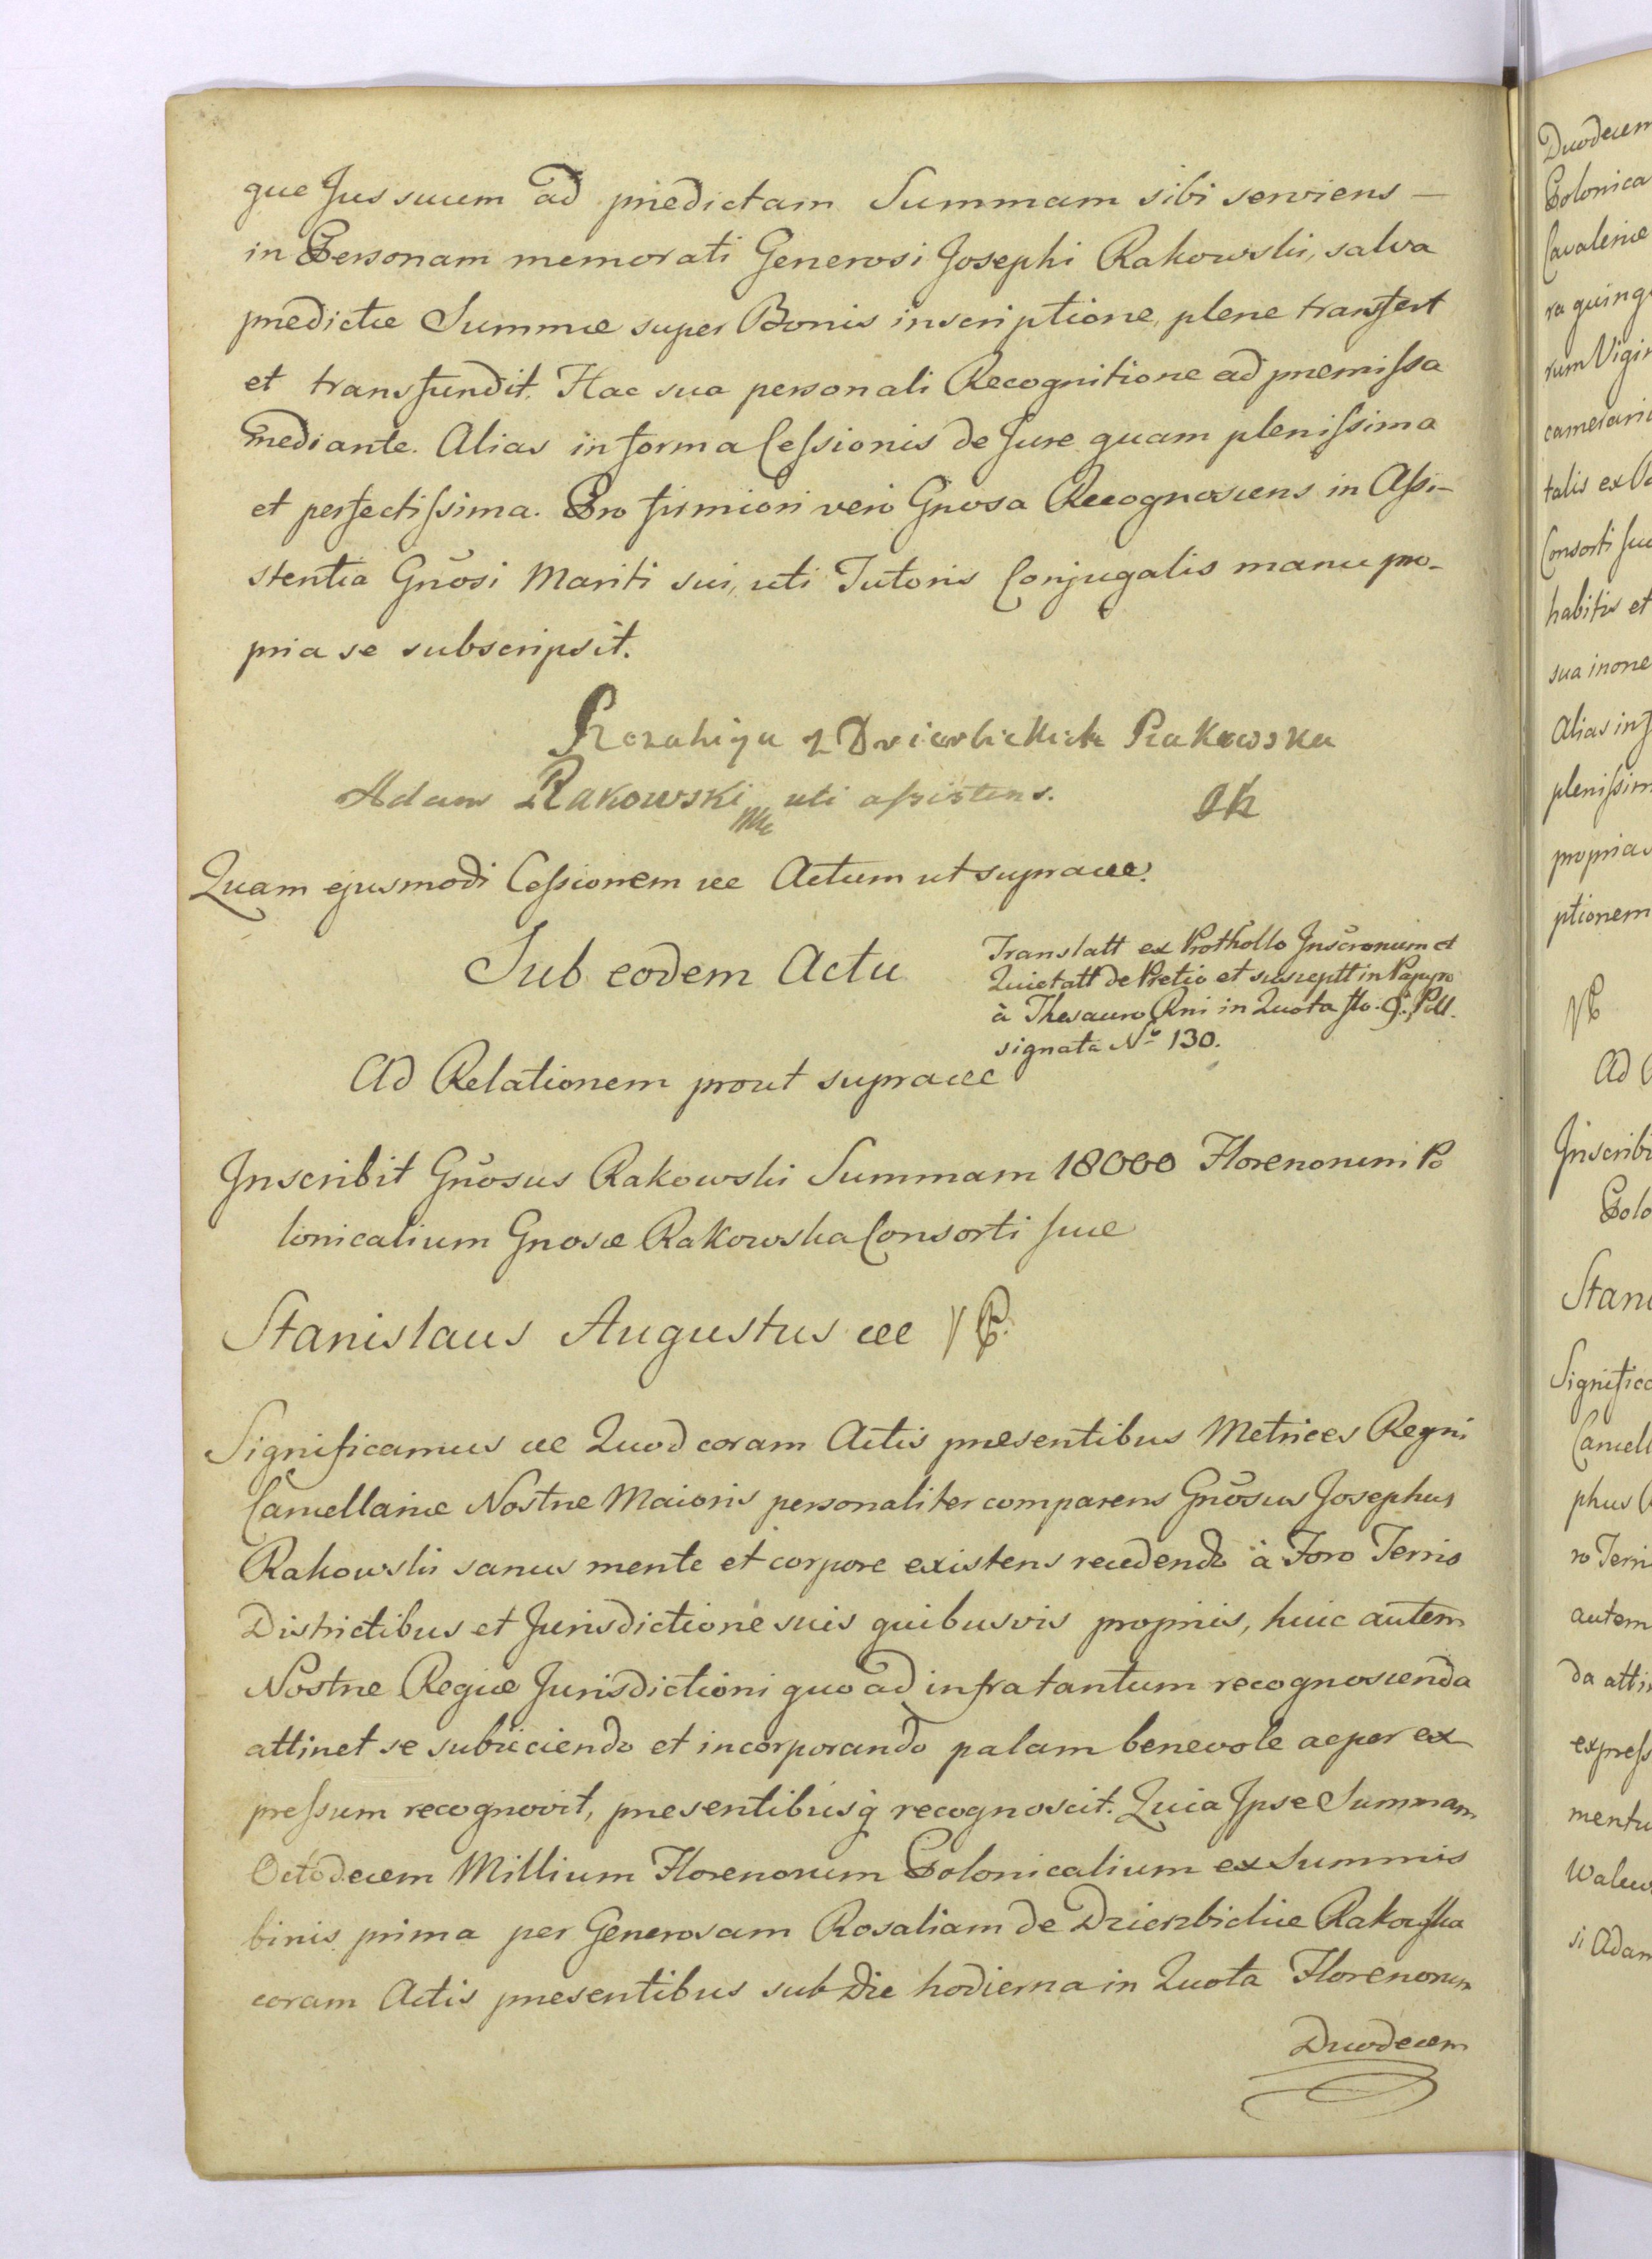 que Jus suum ad prædictam Summam sibi serviens —
in Personam memorati Generosi Josephi Rakowski, salva
prædictæ Summæ super Bonis inscriptione, plene transfert
et transfundit. Hac sua personali Recognitione ad præmiſsa
mediante. Alias in forma Ceſsionis de Jure quam pleniſsima
et perfectiſsima. Pro firmiori vero Gnosa Recognoscens in Aſsi-
stentia Gnõsi Mariti sui, uti Tutoris Conjugalis manu pro-
pria se subscripsit.
Rozalija z Dzierbickich Rakowska
Adam Rakowski mp uti aſsistens.
Quam ejusmodi Ceſsionem etc Actum ut supra etc.
Sub eodem Actu
Translatt ex Prothollo Inscronum et
Quietatt de Pretio et susceptt in Papyro
à Thesauro Rni in Quota flo. 9. Poll.
signata No 130.
Ad Relationem prout supra etc
Inscribit Gnõsus Rakowski Summam 18000 Florenorum Po
lonicalium Gnosæ Rakowska Consorti suæ
Stanislaus Augustus etc
Significamus etc Quod coram Actis præsentibus Metrices Regni
Cancellariæ Nostræ Maioris personaliter comparens Gnõsus Josephus
Rakowski sanus mente et corpore existens recedendo à Foro Terris
Districtibus et Jurisdictione suis quibusvis propriis, huic autem
Nostræ Regiæ Jurisdictioni quo ad infra tantum recognoscenda
attinet se subiiciendo et incorporando palam benevole ac per ex
preſsum recognovit, præsentibusq́ recognoscit. Quia Ipse Summam
Octodecem Millium Florenorum Polonicalium ex Summis
binis prima per Generosam Rosaliam de Dzierzbickie Rakowska
coram Actis præsentibus sub Die hodierna in Quota Florenorum
Duodecem